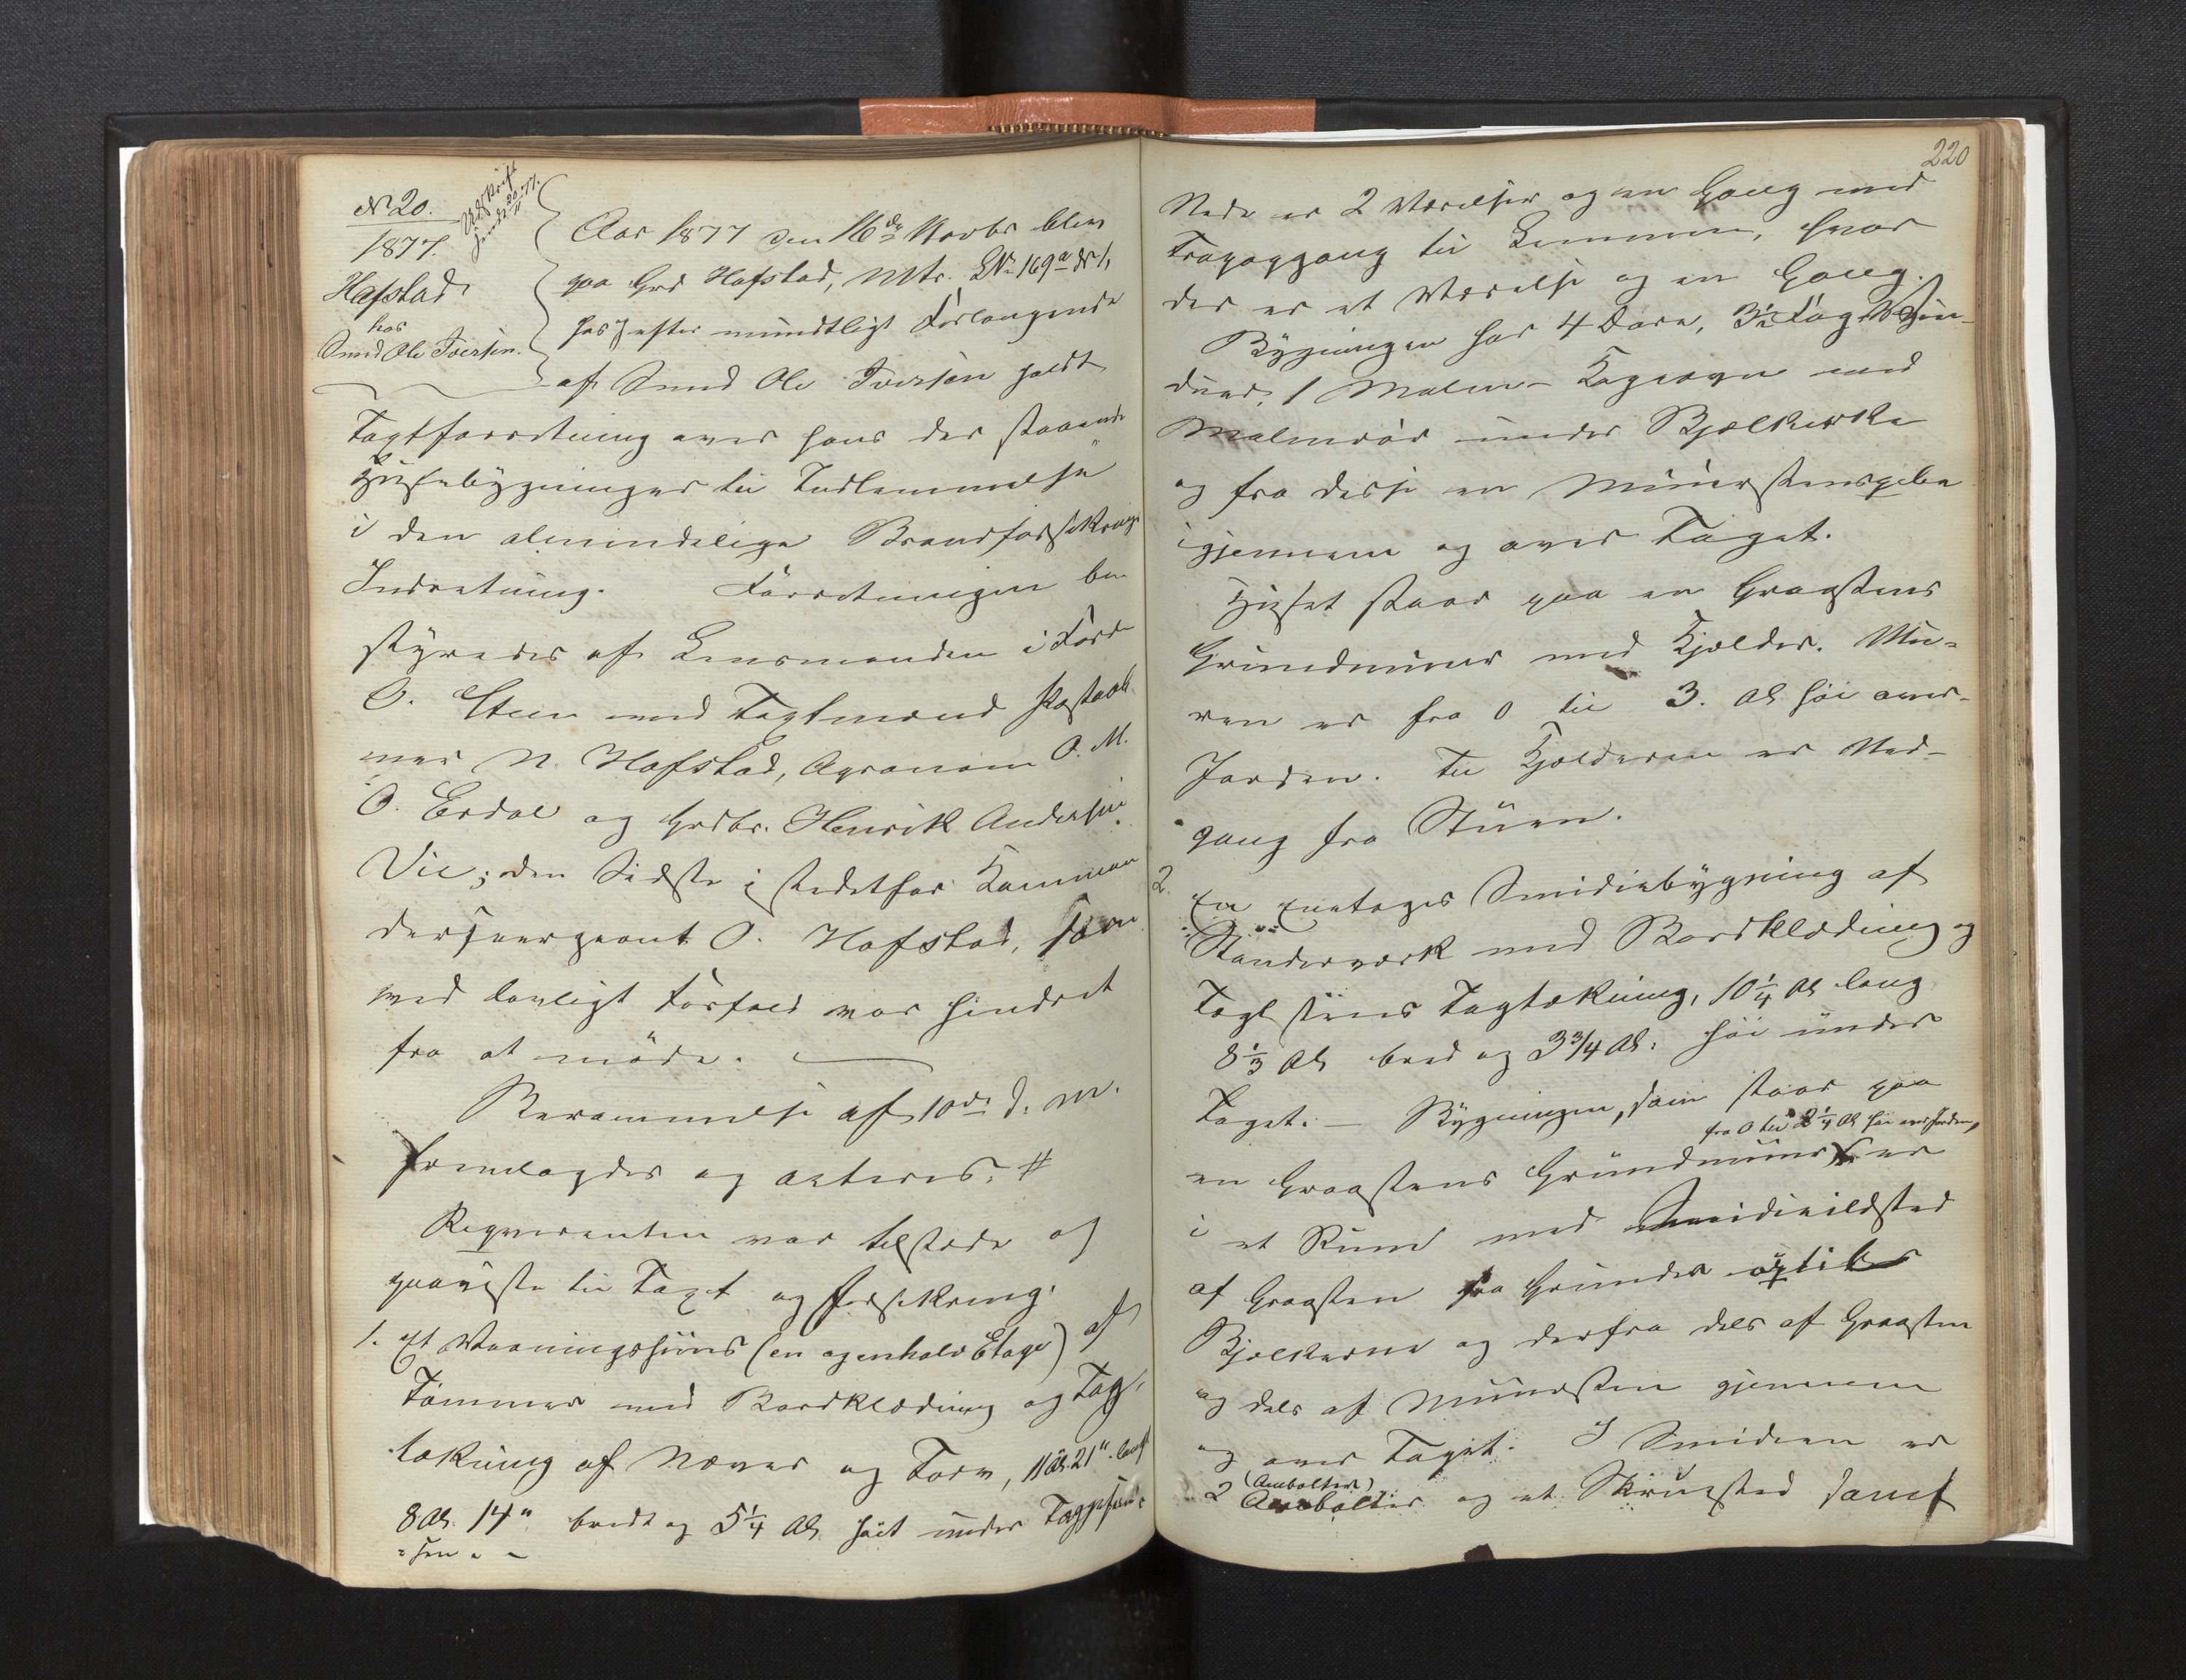 No 20.
1877.
Udskrift
sendt 20/11 77.
Hafstad
hos
Smed Ole Iversen.
Aar 1877 den 16de Novbr blev
paa Grd Hafstad, Mtr. LNo 169a
efter mundtligt Forlangende
af Smed Ole Iversen holdt
Taxtforretning over hans der staaende
Husebygninger til Indlemmelse
i den almindelige Brandforsikrings
Indretning. Forretningen be-
styredes af Lensmanden i Førde
O. Steen med Taxtmænd
N. Hafstad, Agronom O. M.
O. Erdal og Grdbr. Henrik Andersen
Vie; den Sidste istedetfor Komman
dersergeant O. Hafstad, som
ved lovligt Forfald var hindret
fra at møde.
Berammelse af 10de d. M.
fremlagdes og acteres. #
Reqvirenten var tilstede og
paaviste til Taxt og Forsikring:
1. Et Vaaningshuus (en og en halv Etage) af
Tømmer med Bordklædning og Tag-
tækning af Næver og Torv, 11 Al. 21" langt
8 Al. 14" bredt og 5 1/4 Al. høit under
220
Nede er 2 Værelser og en Gang med
Trapogang til Lemmen, hvor
der er et Værelse og en Gang.
Bygningen har 4 Døre, 3 1/2 Fag Vin-
duer, 1 Malm-Kogeovn med
Malmrør under Bjelkerke
og fra disse en Muurstenspibe
igjennem og over Taget.
Huset staar paa en Graastens
Grundmuur med Kjælder. Mu-
ren er fra 0 til 3. Al høi over
Jorden. Til Kjælderen er Ned-
gang fra Stuen.
2. En eenetages Smidiebygning af
Standerværk med Bordklædning og
Taglsteens Tagtækning, 10 1/4 Al lang
8 1/3 Al bred og 3 3/4 Al. høi under
Taget. – Bygningen, som staar paa
fra 0 til 2 1/4 Al høi over Jorden,
en Graastens Grundmuur er
i et Rum med Smidieildsted
af Graasten fra Grunden op til
Bjelkerne og derfra dels af Graasten
og dels af Muursten gjennem
og over Taget. I Smidien er
(Ambolter)
2 Ambolter og et Skruested samt